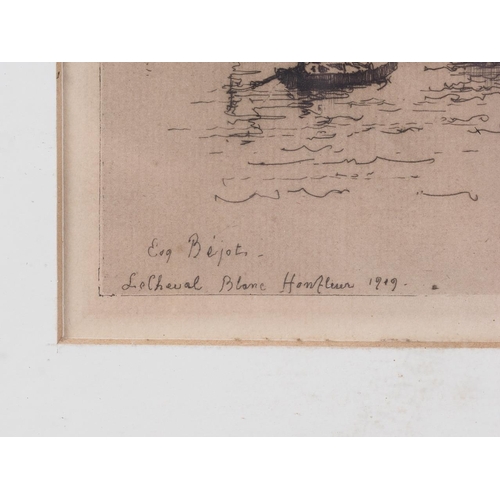 Eug Béjot.
Le Cheval Blanc Honfleur 1919.